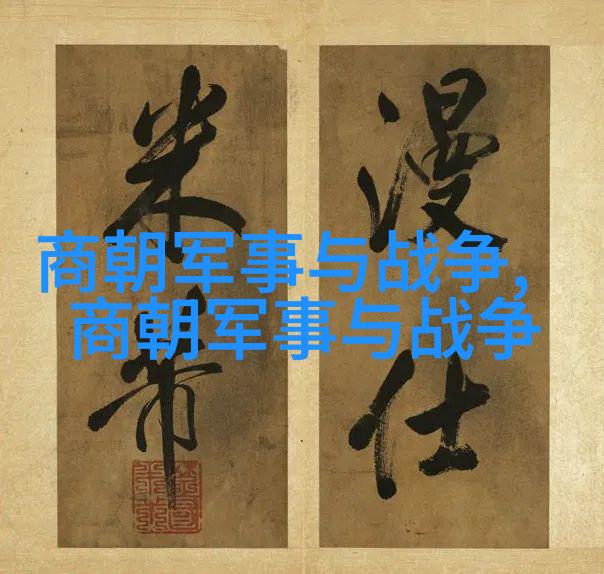 商朝军事与战争,
商朝军事与战争
漫仕
米芾